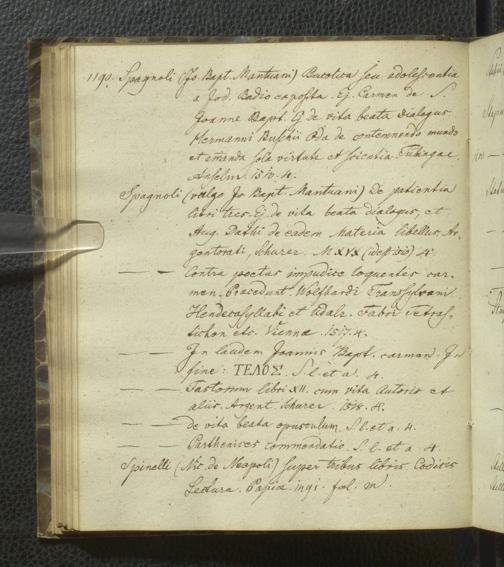 1190. Spagnoli (Jo. Bapt. Mantuani) Bucolica seu adolescentia
a Jod. Badio exposita. Ej. Carmen de S.
Joanne Bapt. Ej. de vita beata Dialogus
Hermanni Buschii Oda de contemnendo mundo
et amanda sola virtute et scientia. Tubingae.
Anselm. 1510. 4.
Spagnoli (vulgo Jo Bapt. Mantuani) De patientia
libri tres. Ej. de vita beata dialogus, et
Aug. Dathi de eadem Materia libellus. Ar-
gentorati, Schurer. MXVX 4.
— — Contra poetas impudice loquentes car-
men. Praecedunt. Wolfhardi Transylvani
Hendecasyllabi et Fabri tetras-
tichon etc. Vienna. 4.
— — In laudem Joannis Bapt. carmen. In
fine: ΤΕΛΟΣ. S. l. et a. 4.
— — Fastorum libri XII. cum vita Autoris et
aliis. Argent. Schurer. 1518. 4.
— — de vita beata opusculum. S. l. et a. 4.
— — Parthenices commendatio. S. l. et a. 4.
Spinelli (Nic. de Neapoli) super tribus libris Codicis
Lectura. Papia. fol. m.